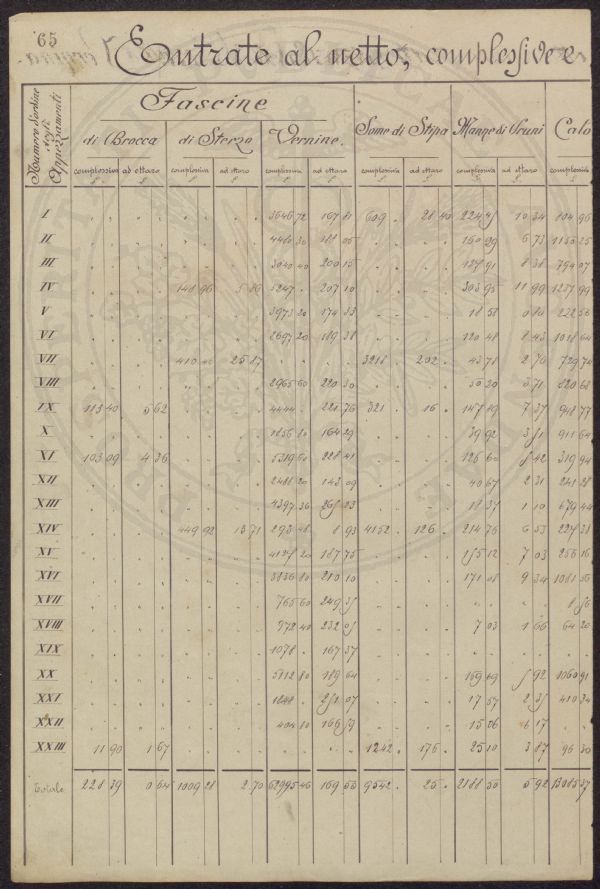 65
Entrate al netto, complessive e
Numero d'ordine degli Appezzamenti
Fascine
di Brocca di Sterzo Vernine. Some di Stipa Manne di Pruni Calo
complessiva ad ettaro complessiva ad ettaro complessiva ad ettaro complessiva ad ettaro complessiva ad ettaro complessiva
I 3646 72 167 81 609 . 28 40 224 45 10 34 804 96
II 4480 30 188 05 160 29 6 73 1150 25
III 3040 40 200 15 127 91 8 38 794 07
IV 148 96 5 86 5247 . 207 10 303 95 11 99 1237 99
V 3973 20 174 33 18 58 0 80 222 56
VI 2697 20 189 38 120 48 8 43 1018 64
VII 410 25 87 3218 . 202 . 43 78 2 70 729 74
VIII 2965 60 220 30 50 20 3 71 820 68
IX 113 40 5 62 4444 . 221 76 321 . 16 . 147 49 7 37 948 77
X 1856 80 164 29 39 92 3 51 911 64
XI 103 09 4 36 5319 60 228 41 126 60 5 42 319 94
XII 2488 20 143 09 40 67 2 31 241 28
XIII 4397 36 265 23 18 37 1 10 679 44
XIV 449 92 13 71 293 48 8 93 4152 . 126 . 214 76 6 53 227 38
XV 4127 20 187 75 155 12 7 03 256 16
XVI 3836 80 210 10 171 08 9 34 1081 56
XVII 765 60 249 35 8 56
XVIII 972 40 232 05 7 03 1 66 64 20
XIX 1078 . 167 37
XX 5112 80 189 64 159 69 5 92 1060 91
XXI 251 07 17 57 2 35 410 34
XXII 404 80 166 59 15 06 6 17
XXIII 11 90 1 67 1242 . 176 . 25 10 3 87 96 30
Totale 228 39 0 64 1009 28 2 70 62995 46 169 55 9542 . 25 . 2188 50 5 92 13085 37